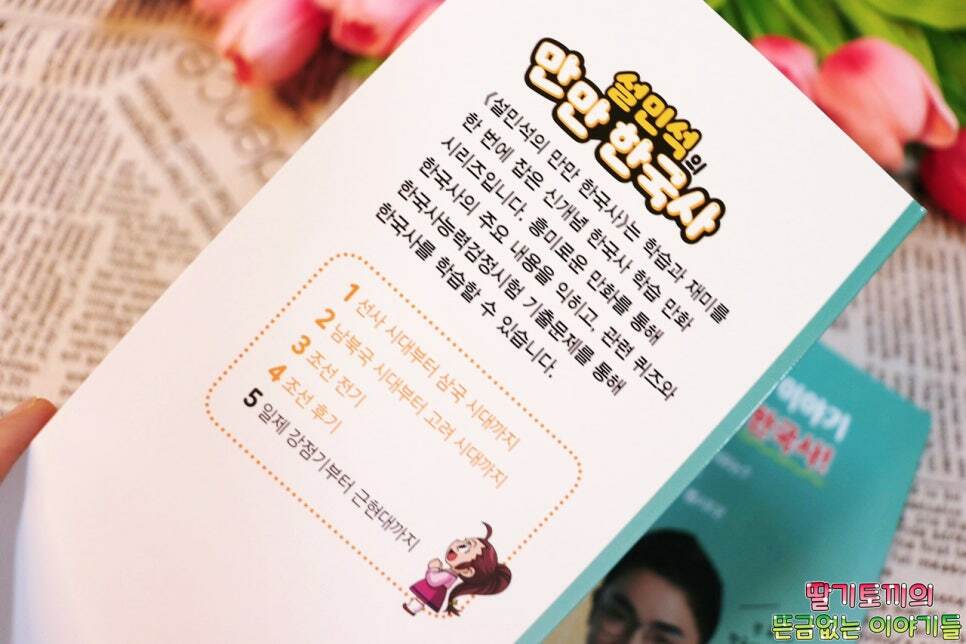 설민석의
만만 한국사
〈설민석의 만만 한국사〉는 학습과 재미를
한 번에 잡은 신개념 한국사 학습 만화
시리즈입니다. 흥미로운 만화를 통해
한국사의 주요 내용을 익히고, 관련 퀴즈와
한국사능력검정시험 기출문제를 통해
한국사를 학습할 수 있습니다.
1 선사 시대부터 삼국 시대까지
2 남북국 시대부터 고려 시대까지
3 조선 전기
4 조선 후기
5 일제 강점기부터 근현대까지
이야기
한국사!
딸기토끼의
뜬금없는 이야기들